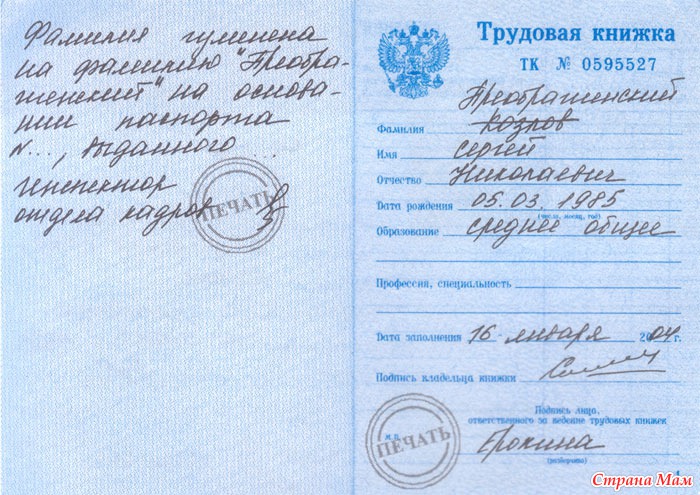 Фамилия изменена
на фамилию "Преобра-
женский" на основа-
нии паспорта
N..., выданного ...
инспектор
отдела кадров
ПЕЧАТЬ
Трудовая книжка
ТК № 0595527
Преображенский
Фамилия Козлов
Имя Сергей
Отчество Николаевич
Дата рождения 05.03.1985
(число, месяц, год)
Образование среднее общее
Профессия, специальность
Дата заполнения 16 января 2004 г.
Подпись владельца книжки
Подпись лица,
ответственного за ведение трудовых книжек
М.П.
ПЕЧАТЬ
Ерохина
(разборчиво)
1
Страна Мам